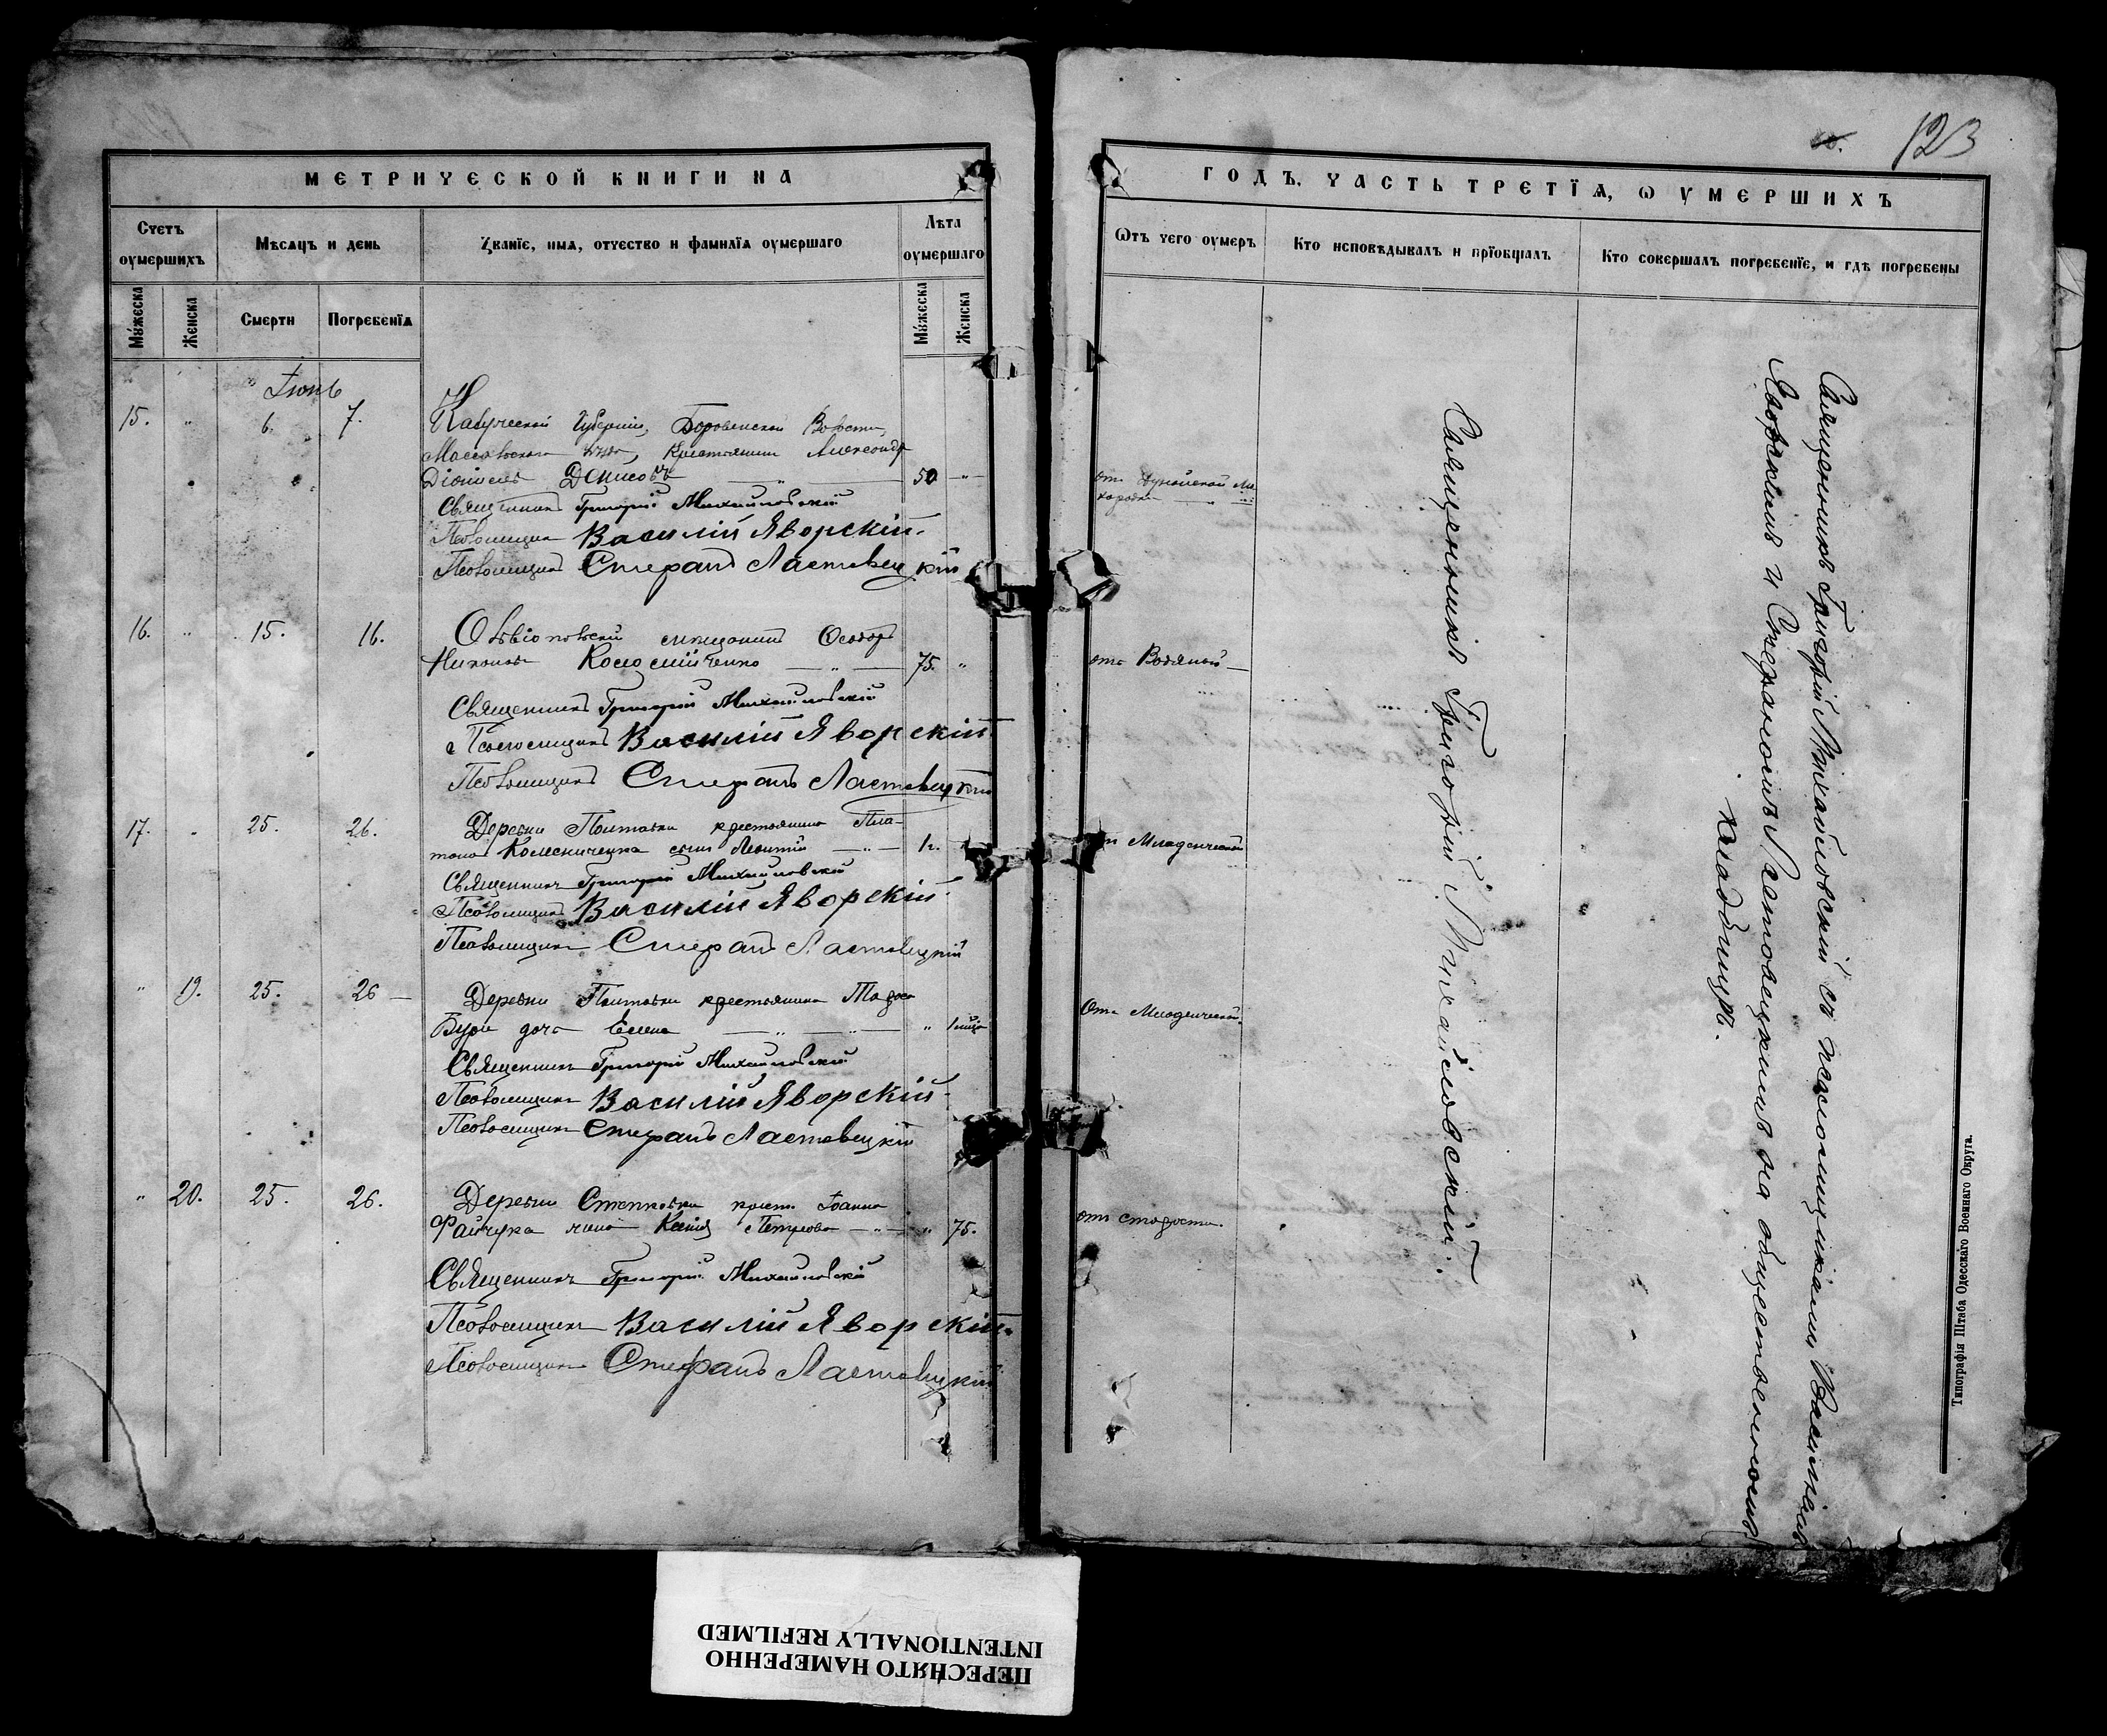 123
МЕТРИЧЕСКОЙ КНИГИ НА
ГОДЪ, ЧАСТЬ ТРЕТІѦ, Ѡ УМЕРШИХЪ
Счетъ оумершихъ
Мѣсяцъ и день
Званіе, имѧ, отчество и фамиліѧ оумершаго
Лѣта оумершаго
Ѡтъ чего оумеръ
Кто исповѣдывалъ и пріобщалъ
Кто совершалъ погребеніе, и гдѣ погребены
Мꙋжеска
Женска
Смерти
Погребеніѧ
Мꙋжеска
Женска
Іюнь
15. " 6. 7. Губерніи, Боровенской Волости,
уѣзда, Крестьянинъ Александръ
Діонисіевъ Денисовъ — " — 50 "
отъ
Священникъ Григорій Михайловскій
Псаломщикъ Василій Яворскій.
Псаломщикъ Стефанъ Ластовецкій
16. " 15. 16. Овидіопольскій мѣщанинъ Феодоръ
75. " отъ Водяной —
Священникъ Григорій Михайловскій
Псаломщикъ Василій Яворскій
Псаломщикъ Стефанъ Ластовецкій
17. 25. 26. Деревни крестьянина Пла-
тона сынъ Леонтій — " — 1 г.
отъ Младенческой
Священникъ Григорій Михайловскій
Псаломщикъ Василій Яворскій
Псаломщикъ Стефанъ Ластовецкій
" 19. 25. 26 — Деревни крестьянина
дочь Елена — " — " — "
Отъ Младенческой.
Священникъ Григорій Михайловскій
Псаломщикъ Василій Яворскій
Псаломщикъ Стефанъ Ластовецкій
" 20. 25. 26. Деревни Степковки крест. Іоанна
жена Ксенія Петрова — " — " 75.
отъ старости.
Священникъ Григорій Михайловскій
Псаломщикъ Василій Яворскій.
Псаломщикъ Стефанъ Ластовецкій
Священникъ Григорій Михайловскій.
Священникъ Григорій Михайловскій съ псаломщиками, Василіемъ
Яворскимъ и Стефаномъ Ластовецкимъ на общественномъ
кладбищѣ.
Типографія Штаба Одесскаго Военнаго Округа.
ПЕРЕСНЯТО НАМЕРЕННО
INTENTIONALLY REFILMED